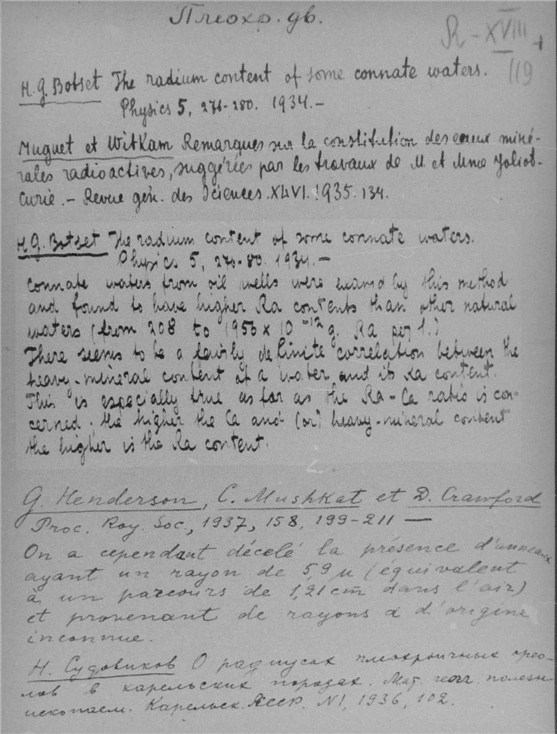 Плеохр. дв.
R - XVIII
119
H.G. Botset The radium content of some connate waters.
Physics 5, 276-280. 1934.-
Muguet et Witkam Remarques sur la constitution des eaux miné-
rales radioactives, suggérées par les travaux de M et Mme Joliot-
Curie.- Revue gén. des Sciences. XLVI. 1935. 134.
H.G. Botset The radium content of some connate waters.
Physics 5, 276-80. 1934.-
Connate waters from oil wells were examd by this method
and found to have higher Ra contents than other natural
waters (from 208 to 1956 x 10 -12 g. Ra per l.)
There seems to be a fairly definite correlation between the
heavy-mineral content of a water and its Ra content.
This is especially true as far as the Ra-Ca ratio is con-
cerned. the higher the Ca and (or) heavy-mineral content
the higher is the Ra content.
G. Henderson, C. Mushkat et D. Crawford
Proc. Roy. Soc, 1937, 158, 199-211 —
On a cependant décelé la présence d'anneaux
ayant un rayon de 5,9 μ (équivalent
à un parcours de 1,21 cm dans l'air)
et provenant de rayons α d'origine
inconnue.
Н. Судовиков О радиусах плеохроичных орео-
лов в карельских породах. Мат. геол. полезн
ископаем. Карельск. АССР. N1, 1936, 102.